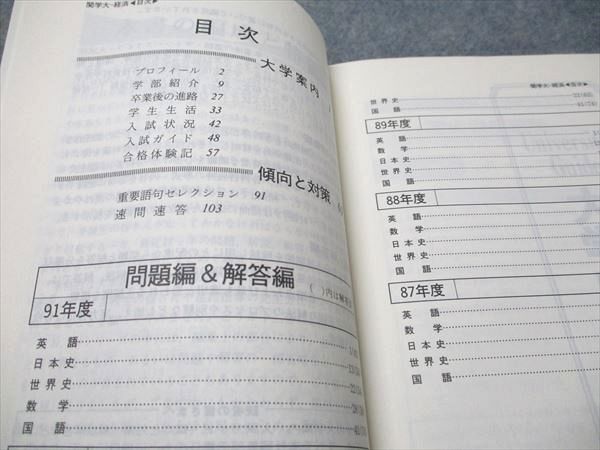 関学大-経済◀目次▶
目次
大学案内
プロフィール 2
学部紹介 9
卒業後の進路 27
学生生活 33
入試状況 42
入試ガイド 48
合格体験記 57
傾向と対策
重要語句セレクション 91
速問速答 103
問題編&解答編
( )内は解答
91年度
英語
日本史
世界史
数学
国語
関学大-経済◀目次▶
世界史
国語
89年度
英語
数学
日本史
世界史
国語
88年度
英語
数学
日本史
世界史
国語
87年度
英語
数学
日本史
世界史
国語